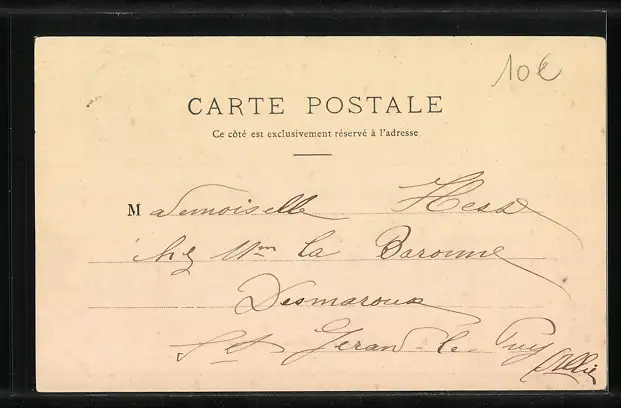 10€
CARTE POSTALE
Ce côté est exclusivement réservé à l'adresse
Mademoiselle Hess
chez Mme la Baronne
Desmaroux
St Geran-le-Puy
Allier